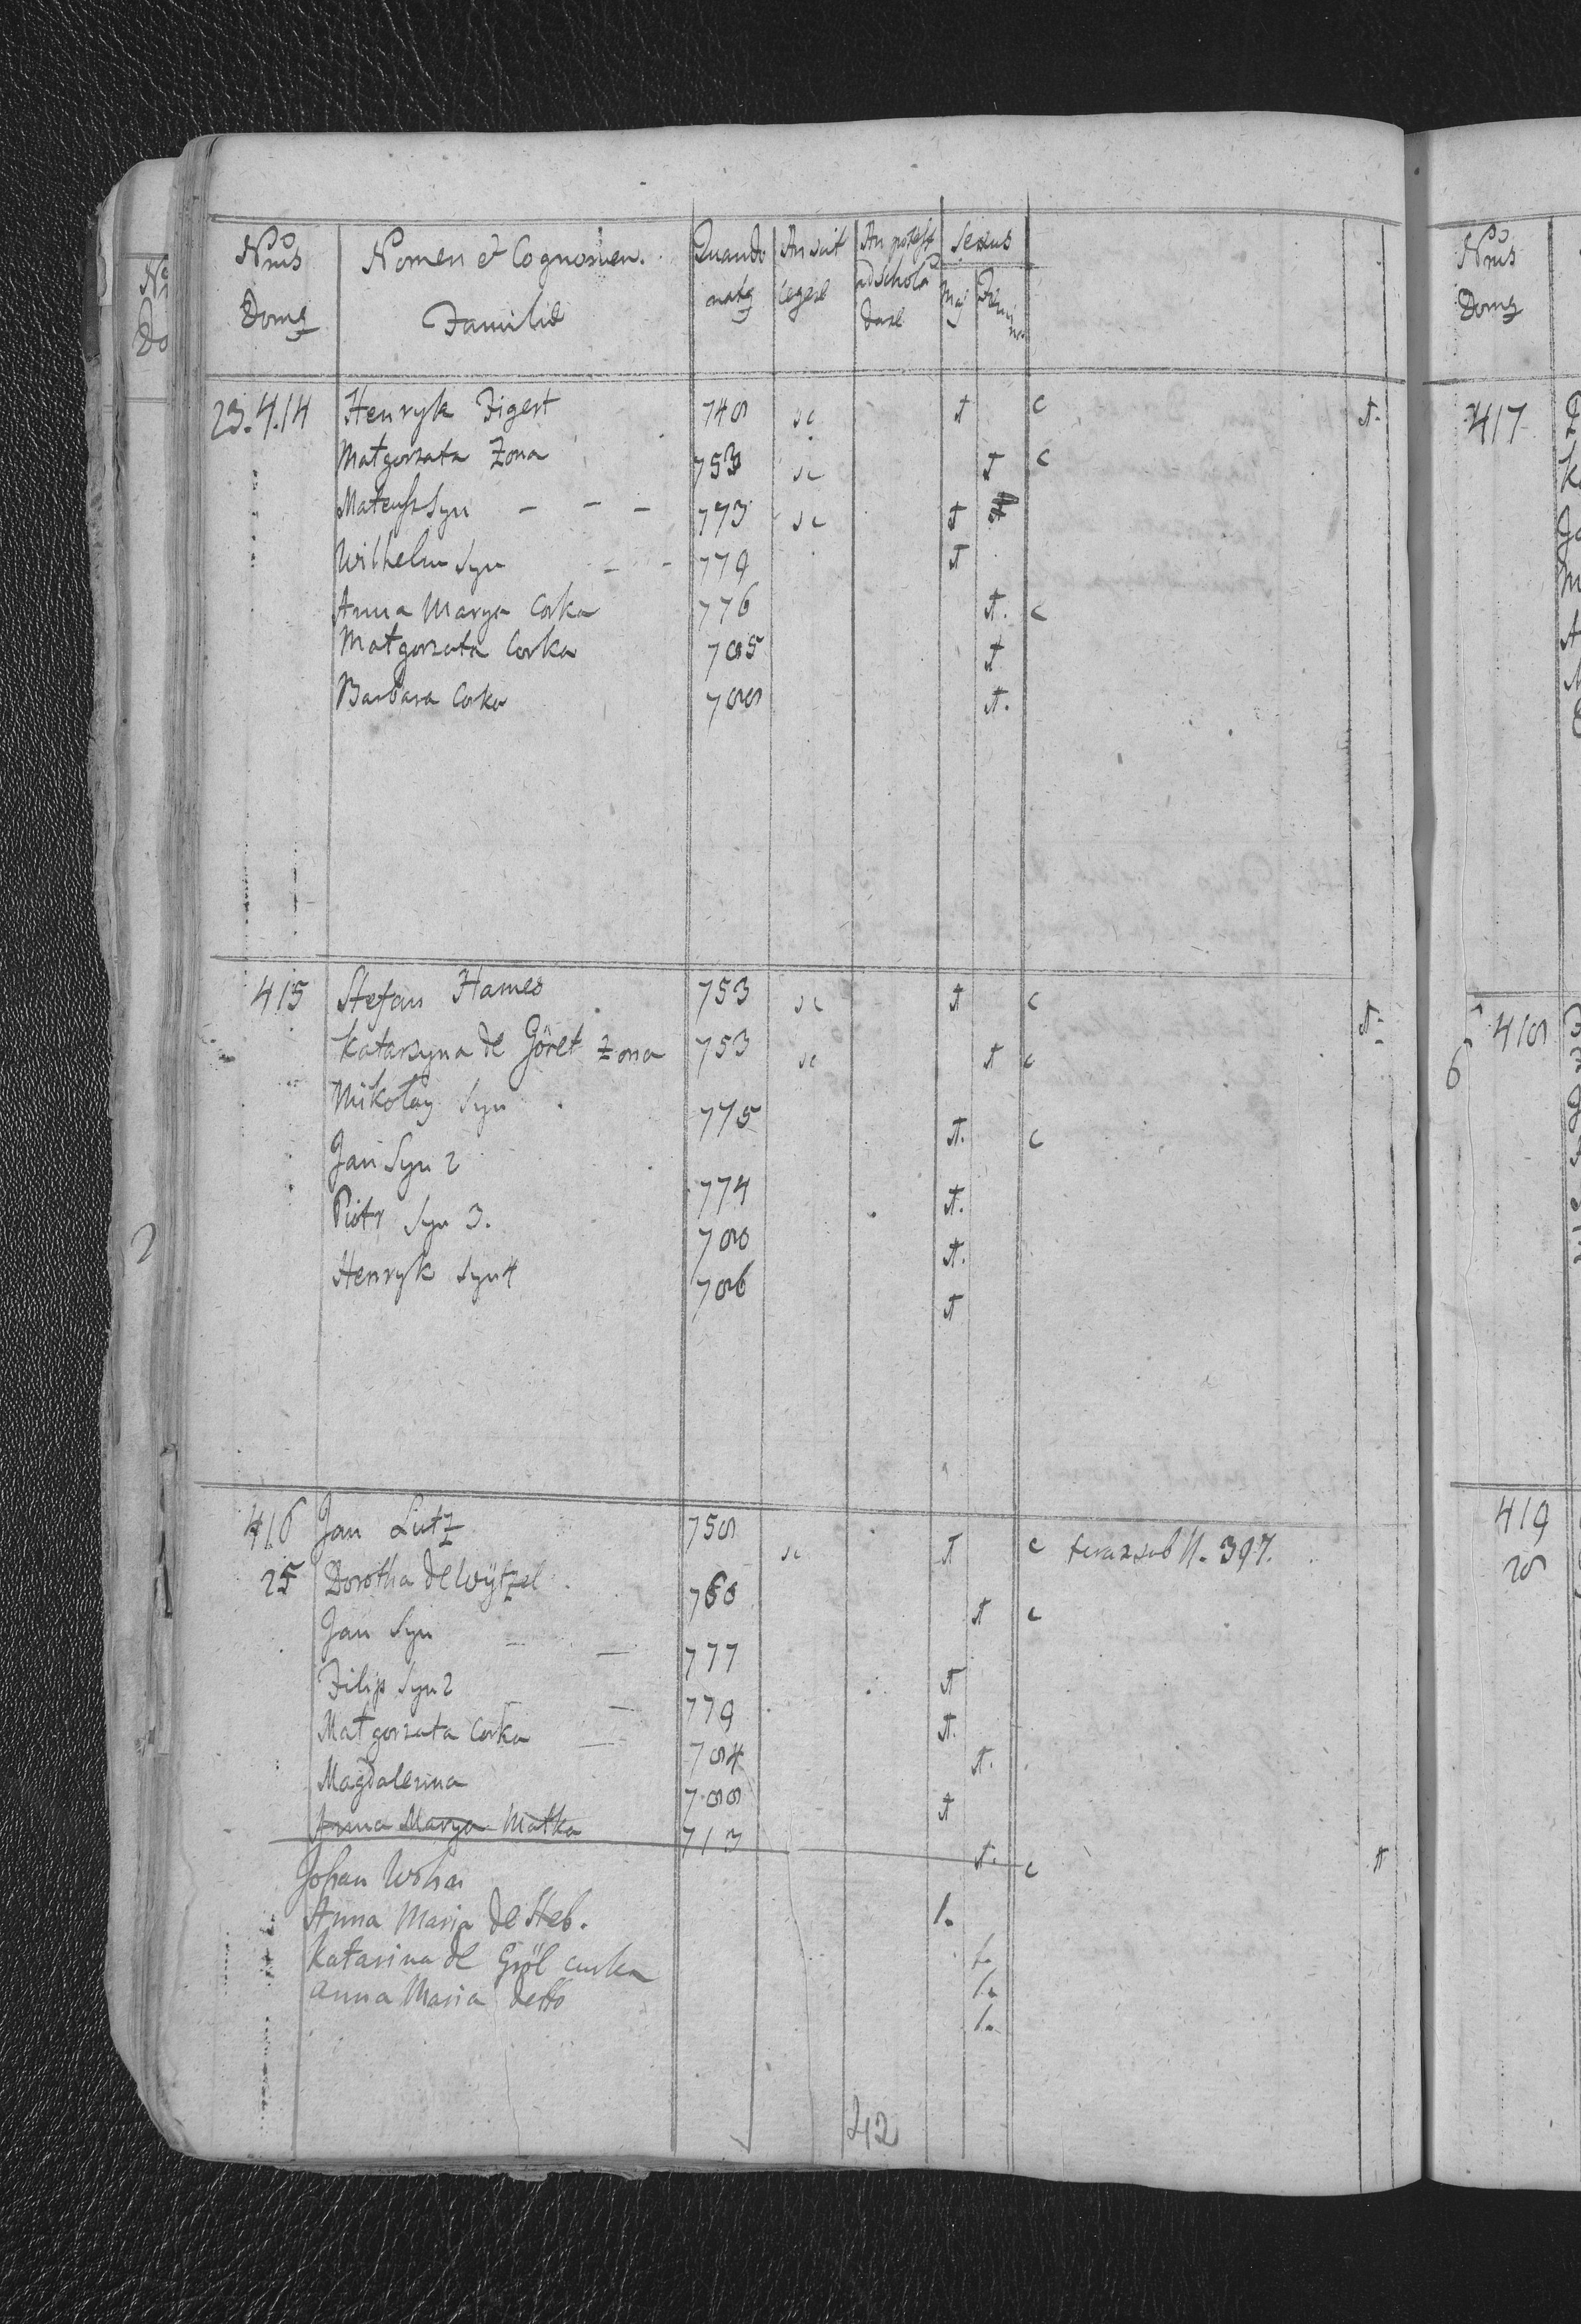 Nrus Domq Nomen et Cognomen Familie Quando natq An scit legere An potest ad schola dare Sexus Mas Femina
23. 414 Henryk Figert 748 sc † c †.
Małgorzata Zona 753 sc † c
Mateusz Syn - - - 773 sc †
Wilhelm Syn - - 779 †
Anna Marya Corka 776 †. c
Małgorzata Corka 785 †
Barbara Corka 788 †.
415 Stefan Hames 753 sc † c †.
Katarzyna de Göret Zona 753 sc † c
Mikołay Syn 775 †. c
Jan Syn 2 774 †.
Piotr Syn 3. 780 †.
Henryk Syn 4 786 †
416 Jan Lutz 758 sc † c teraz sub N. 397.
25 Dorotha de Wÿtzel 760 † c
Jan Syn - - 777 †
Filip Syn 2 - 779 †.
Małgorzata Corka - 784 †.
Magdalenna 788 †
Anna Marya Matka 713 †. c †
Johan
Anna Maria de Steb. 1.
Katarina de Gröl curka 1.
Anna Maria detto 1.
1.
42
Nrus
Domq
417
418
6
419
28
2